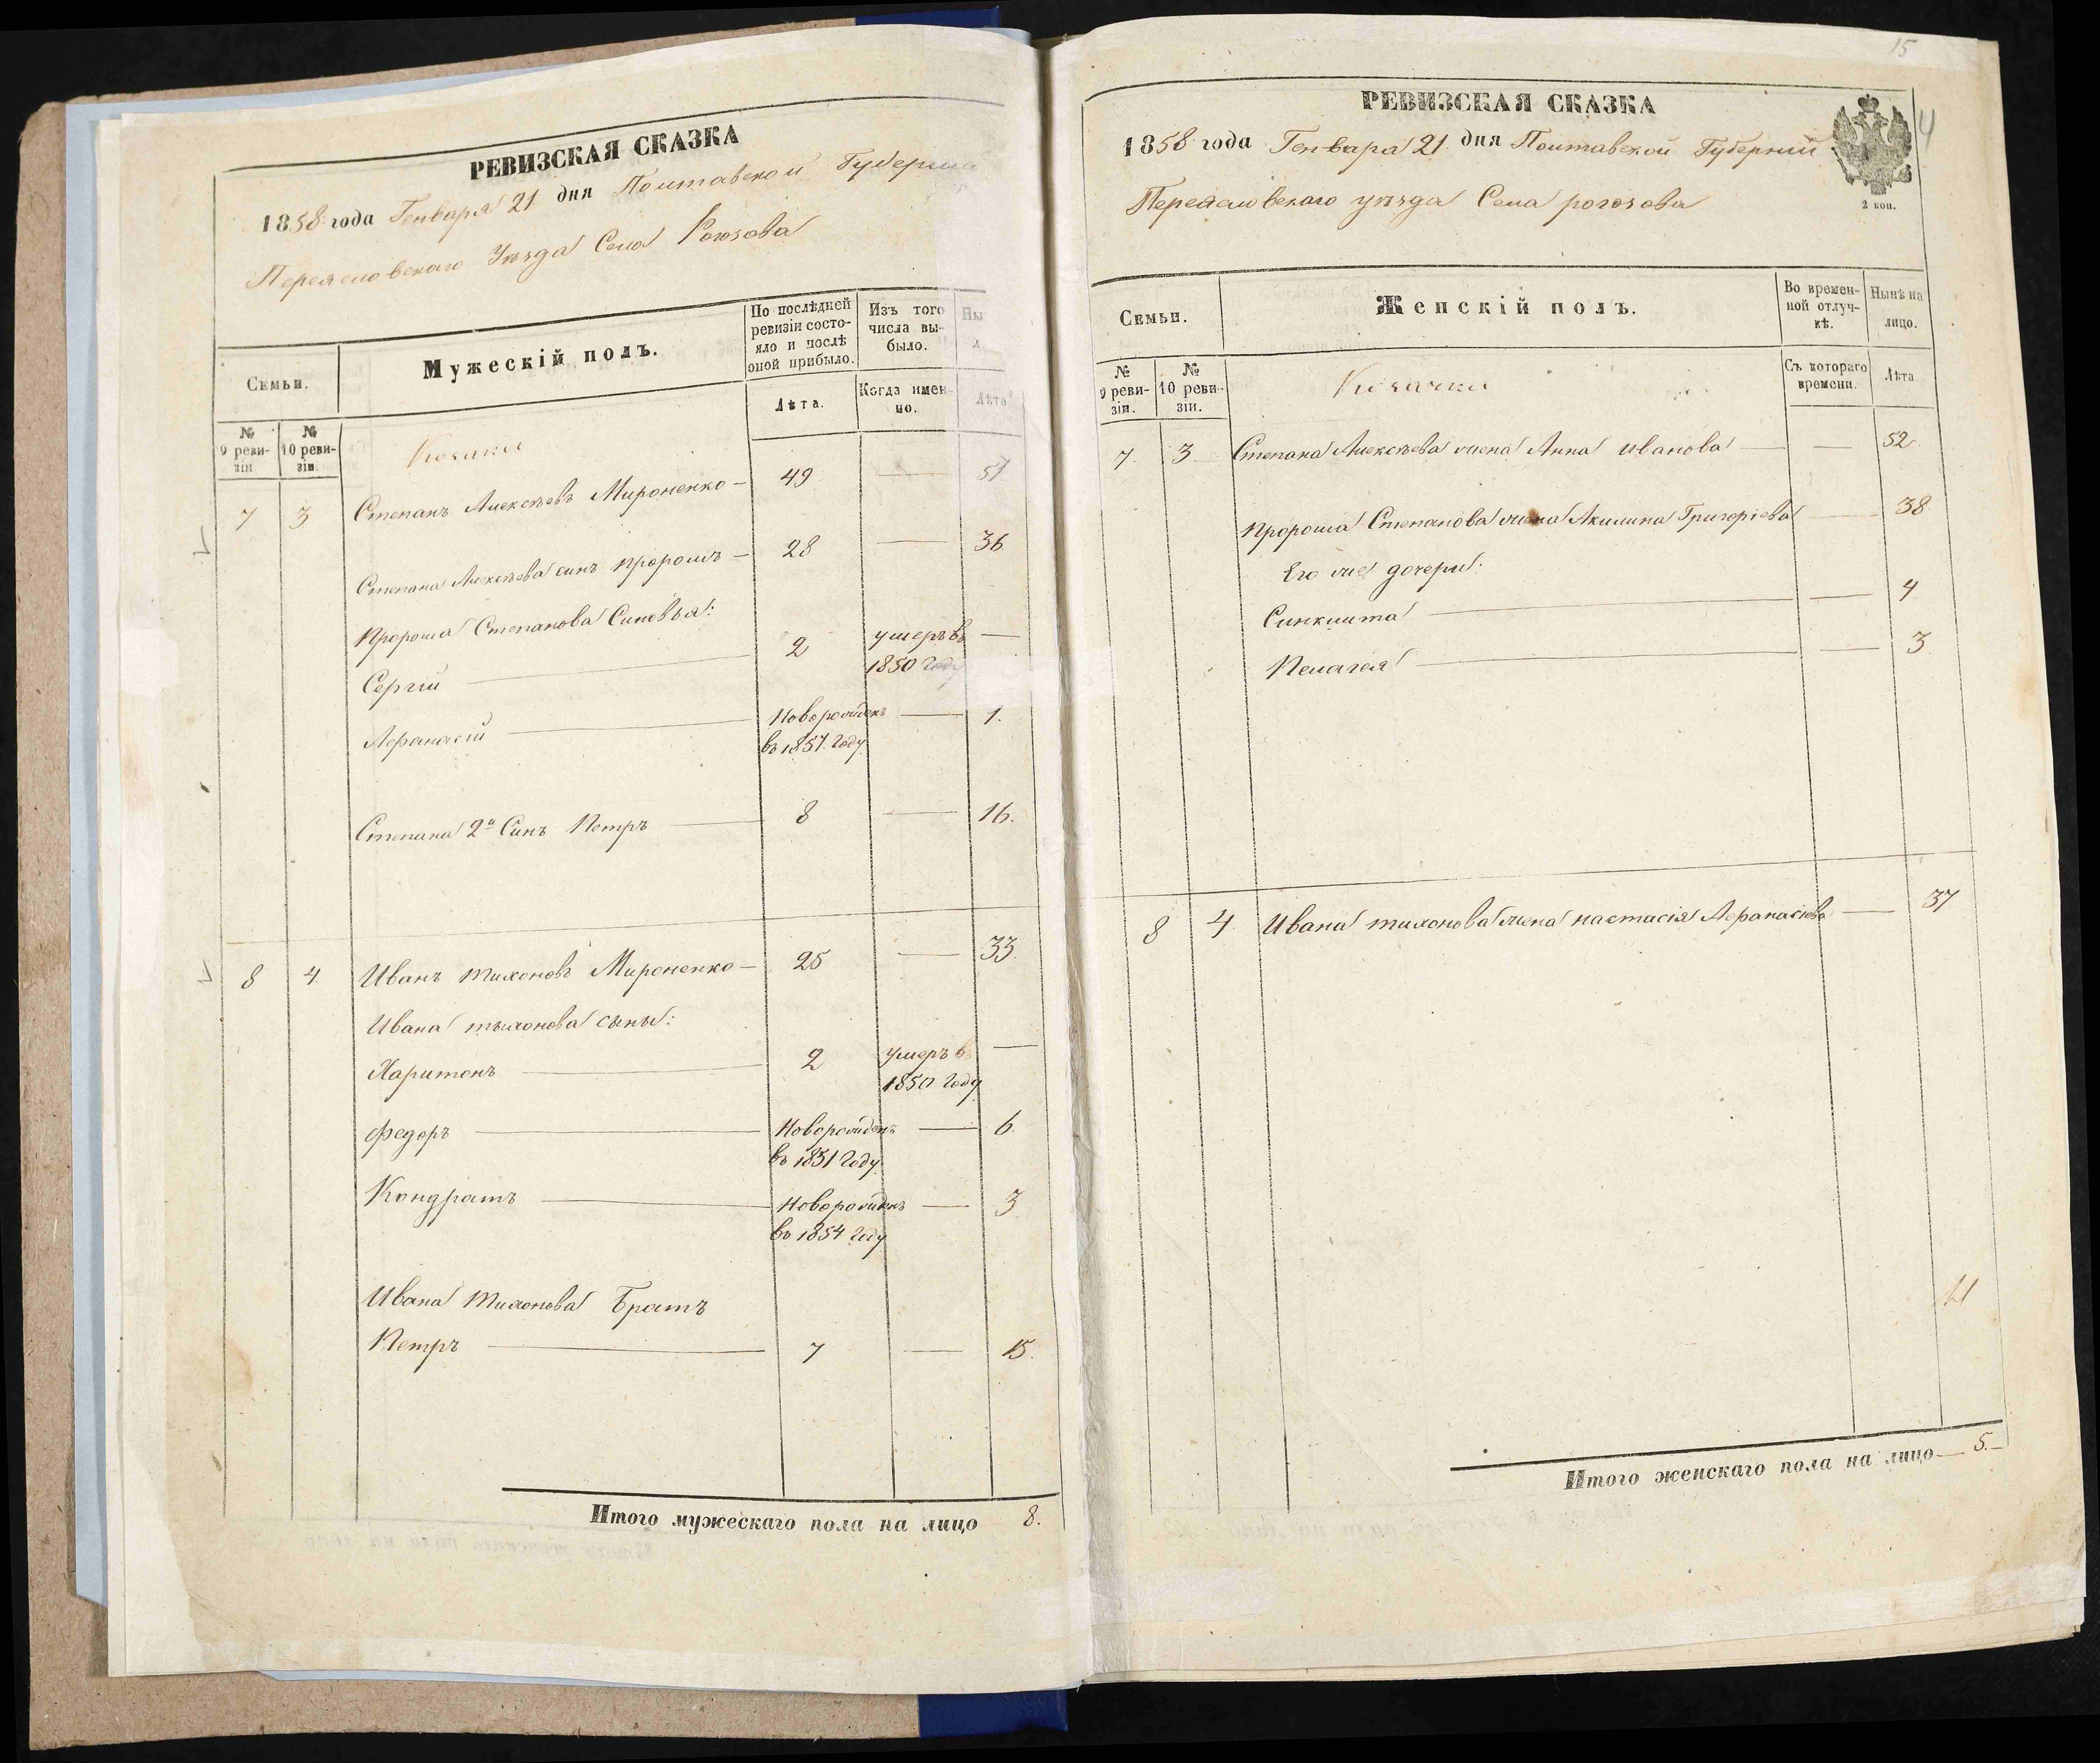 РЕВИЗСКАЯ СКАЗКА
1858 года Генваря 21 дня Полтавской Губернии
Переяславскаго Уѣзда Села Рогозова
Семьи.
Мужескій полъ.
По послѣдней ревизіи состояло и послѣ оной прибыло.
Изъ того числа выбыло.
Ны
№ 9 ревизіи.
№ 10 ревизіи.
Козаки
Лѣта.
Когда именно.
Лѣта
7 3 Степанъ Алексѣевъ Мироненко — 49 — 57
Степана Алексѣева синъ Пророшъ — 28 — 36
Пророша Степанова Синовья:
Сергій — 2 умеръ въ —
1850 году
Афанасій — Новорожденъ — 1.
въ 1857. году.
Степана 2й Синъ Петръ — 8 — 16.
8 4. Иванъ тихоновъ Мироненко — 25 — 33.
Ивана тихонова сыны:
Харитонъ — 2 умеръ въ —
1850 году
Федоръ — Новорожденъ — 6.
въ 1851 году.
Кондратъ — Новорожденъ — 3
въ 1854 году
Ивана Тихонова Братъ
Петръ — 7 — 15.
Итого мужескаго пола на лицо 8.
15
РЕВИЗСКАЯ СКАЗКА
4
1858 года Генваря 21 дня Полтавской Губернии
Переяславскаго уѣзда Села рогозова
2 коп.
Семьи.
Женскій полъ.
Во временной отлучкѣ.
Нынѣ на лицо.
№ 9 ревизіи.
№ 10 ревизіи.
Козачки
Съ котораго времени.
Лѣта.
7. 3. Степана Алексѣева жена Анна иванова — — 52
Пророша Степанова жена Акилина Григоріева — 38
Его же дочери:
Синклита — — 4
Пелагея — — 3
8 4. Ивана тихонова жена настасія Афанасіева — 37
Итого женскаго пола на лицо — 5. —